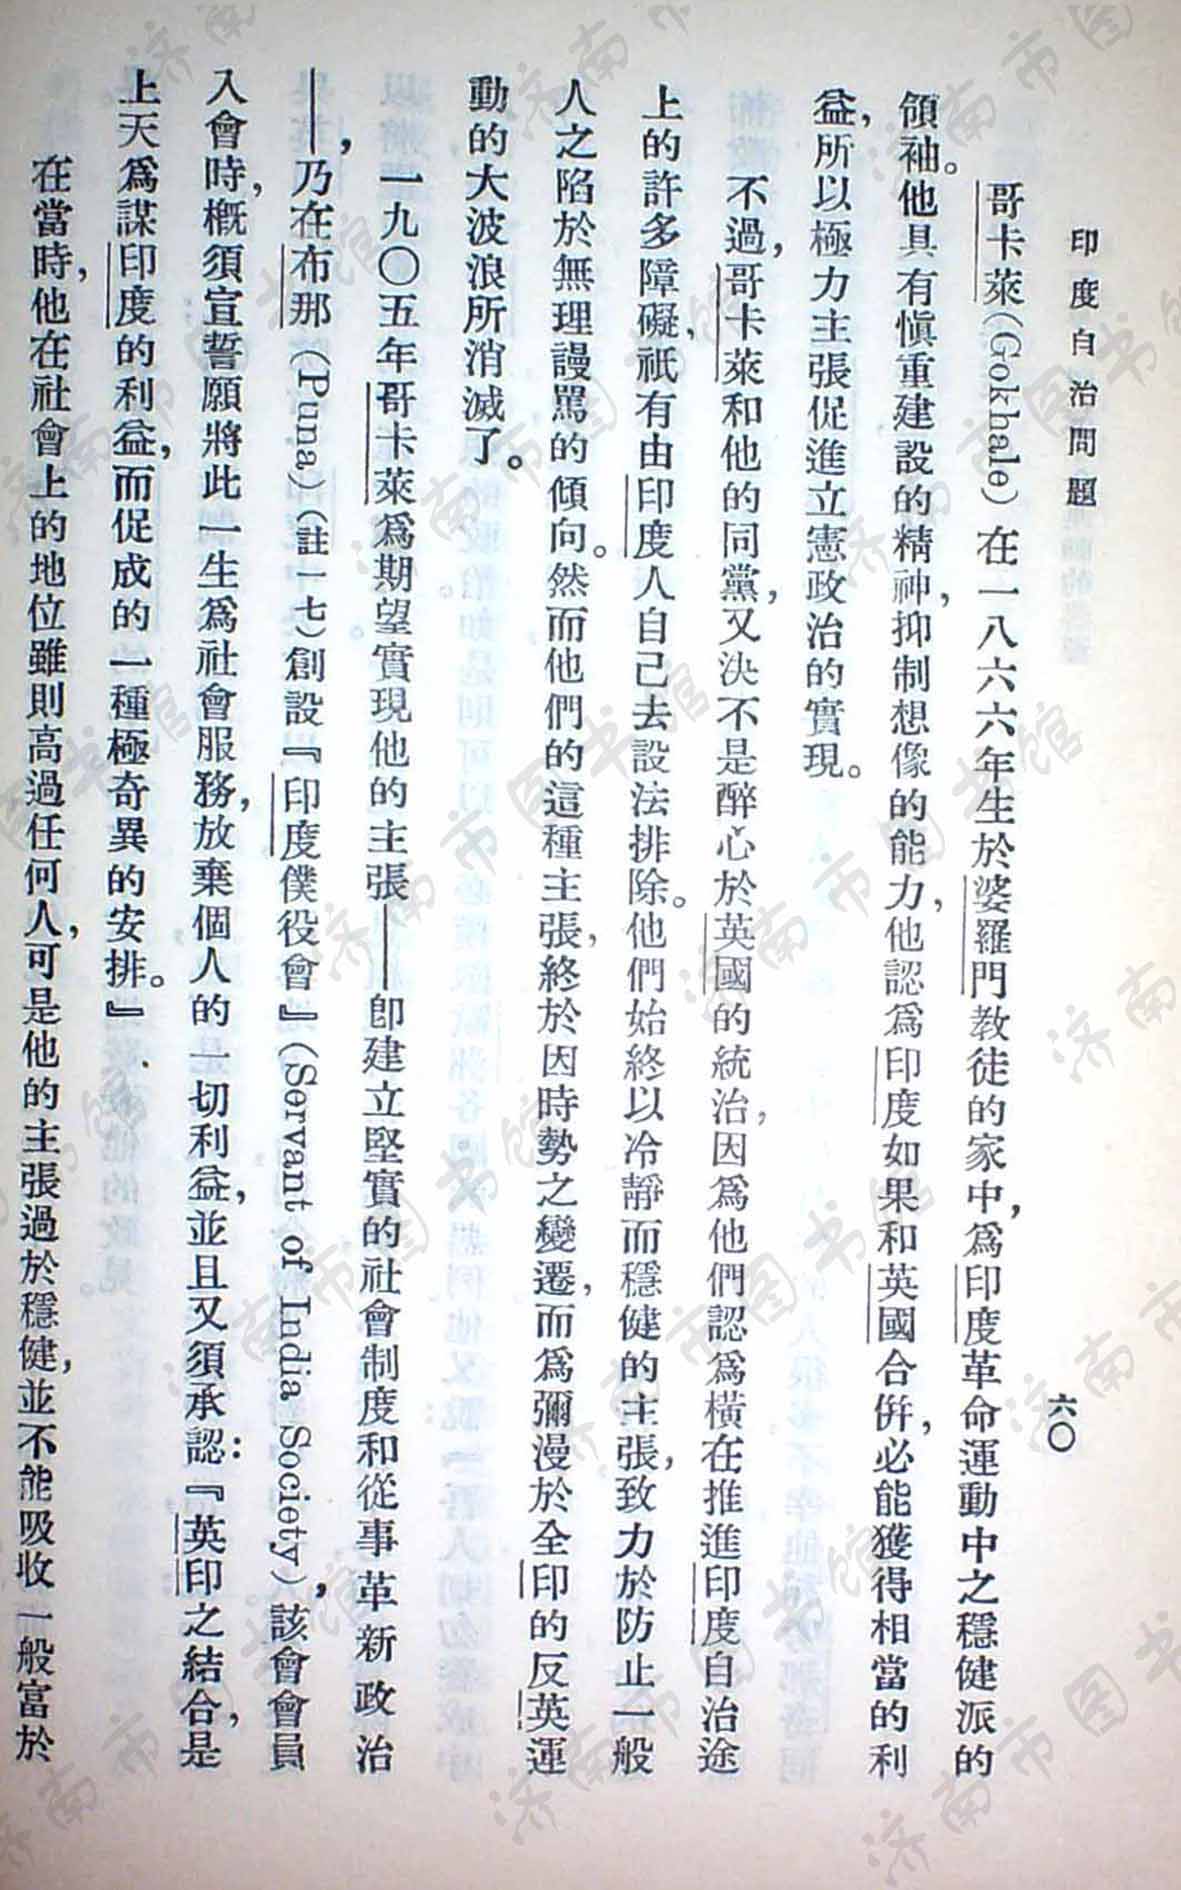 印度自治問題
六〇
哥卡萊(Gokhale)在一八六六年生於婆羅門教徒的家中，爲印度革命運動中之穩健派的
領袖。他具有愼重建設的精神，抑制想像的能力，他認爲印度如果和英國合倂，必能獲得相當的利
益，所以極力主張促進立憲政治的實現。
不過，哥卡萊和他的同黨，又決不是醉心於英國的統治，因爲他們認爲橫在推進印度自治途
上的許多障礙，祇有由印度人自己去設法排除。他們始終以冷靜而穩健的主張，致力於防止一般
人之陷於無理謾罵的傾向。然而他們的這種主張，終於因時勢之變遷，而爲彌漫於全印的反英運
動的大波浪所消滅了。
一九〇五年哥卡萊爲期望實現他的主張——卽建立堅實的社會制度和從事革新政治
——，乃在布那(Puna)(註一七)創設『印度僕役會』(Servant of India Society)，該會會員
入會時，槪須宣誓願將此一生爲社會服務，放棄個人的一切利益，並且又須承認：『英印之結合，是
上天爲謀印度的利益，而促成的一種極奇異的安排。』
在當時，他在社會上的地位雖則高過任何人，可是他的主張過於穩健，並不能吸收一般富於
济南市图书馆